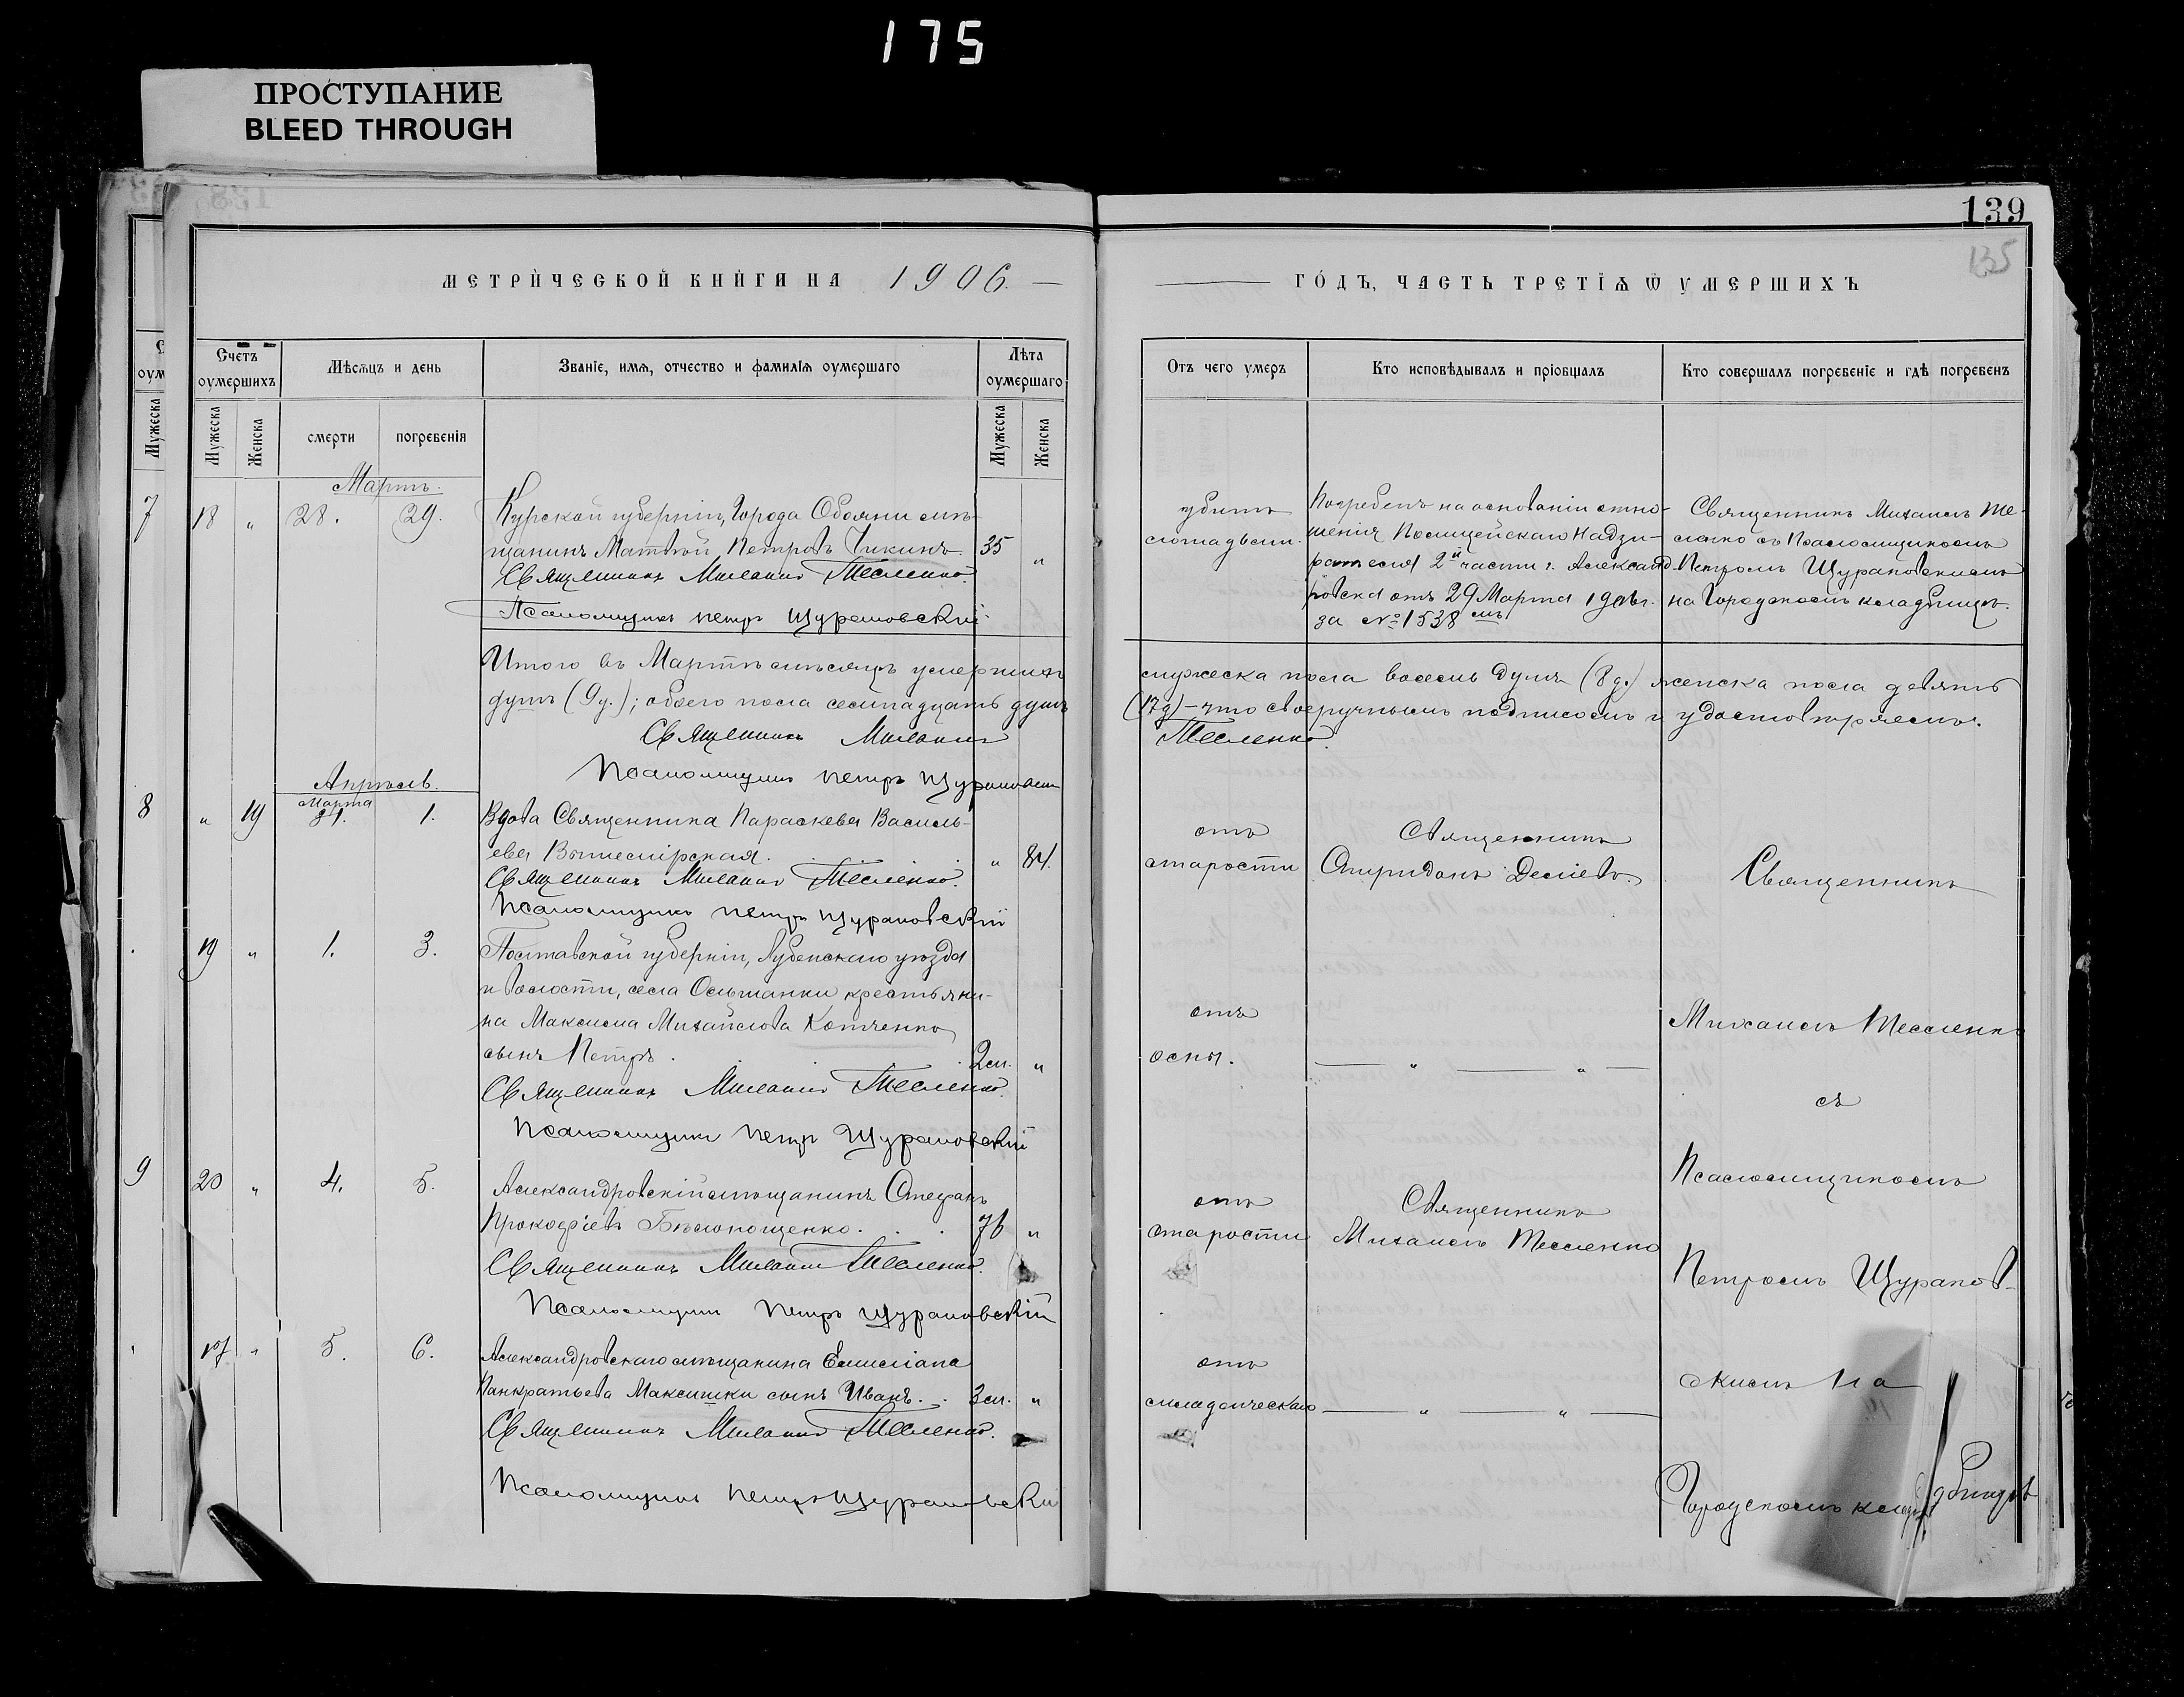 175
ПРОСТУПАНИЕ
BLEED THROUGH
139
135
МЕТРИЧЕСКОЙ КНИГИ НА 1906.
ГОДЪ, ЧАСТЬ ТРЕТІЯ Ѿ УМЕРШИХЪ
Счетъ оумершихъ
Мѣсяцъ и день
Званіе, имя, отчество и фамилія оумершаго
Лѣта оумершаго
Отъ чего умеръ
Кто исповѣдывалъ и пріобщалъ
Кто совершалъ погребеніе и гдѣ погребенъ
Мужеска
Мужеска
Женска
смерти
погребенія
Мужеска
Женска
Мартъ.
7 18 " 28. 29.
Курской губерніи, Города Обояни мѣ-
щанинъ Матвѣй Петровъ Чикинъ. 35 "
Священникъ Михаилъ Тесленко.
Псаломщикъ Петръ Щурановскій.
убитъ
лошадьми.
Погребенъ на основаніи отно-
шенія Полицейскаго Надзи-
рателя 2й части г. Александ-
ровска отъ 29 Марта 1906 г.
за № 1538 мъ
Священникъ Михаилъ Те-
сленко съ Псаломщикомъ
Петромъ Щурановскимъ
на Городскомъ кладбищѣ.
Итого въ Мартѣ мѣсяцѣ умершихъ мужеска пола восемь душъ (8 д.) женска пола девять
душъ (9 д.); обоего пола семнадцать душъ (17 д) – что своеручнымъ подписомъ и удостовѣряемъ.
Священникъ Михаилъ Тесленко.
Псаломщикъ Петръ Щурановскій
Апрѣль.
8 " 19 Марта 31. 1.
Вдова Священника Параскева Василь-
ева Вышемірская. " 84.
Священникъ Михаилъ Тесленко.
Псаломщикъ Петръ Щурановскій
отъ
старости
Священникъ
Спиридонъ
Священникъ
19 " 1. 3.
Полтавской губерніи, Лубенскаго уѣзда
и волости, села Ольшанки крестьяни-
на Максима Михайлова Котченко
сынъ Петръ. 2 м. "
Священникъ Михаилъ Тесленко.
Псаломщикъ Петръ Щурановскій
отъ
оспы.
— " — " —
Михаилъ Тесленко
съ
9 20 " 4. 5.
Александровскій мѣщанинъ Стефанъ
Прокофіевъ Бѣлонощенко. 76 "
Священникъ Михаилъ Тесленко.
Псаломщикъ Петръ Щурановскій
отъ
старости
Священникъ
Михаилъ Тесленко
Псаломщикомъ
Петромъ Щуранов-
" 5. 6.
Александровскаго мѣщанина Емиліана
Панкратьева Максимки сынъ Иванъ. 3 м. "
Священникъ Михаилъ Тесленко.
Псаломщикъ Петръ Щурановскій
отъ
младенческаго
— " — " —
скимъ на
Городскомъ